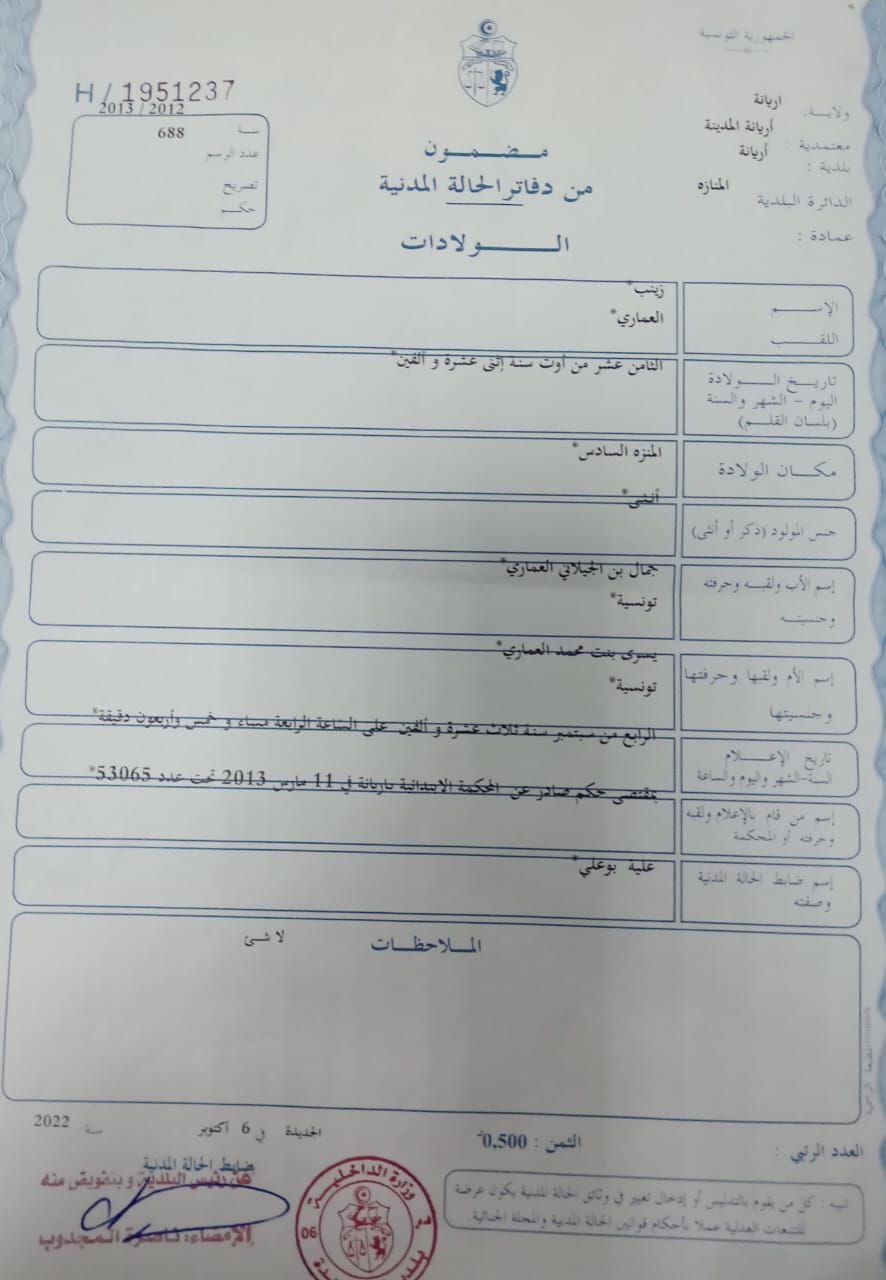 الجمهورية التونسية
ولاية: اريانة
معتمدية : أريانة المدينة
بلدية : أريانة
الدائرة البلدية المنازه
عمادة :
H/1951237
2013/2012
سنة 688
عدد الرسم
تصريح
حكم
مضمون
من دفاتر الحالة المدنية
الولادات
الإسم زينب*
اللقب العماري*
تاريخ الولادة
اليوم - الشهر والسنة
(بلسان القلم)
الثامن عشر من أوت سنة إثنى عشرة و ألفين*
مكان الولادة المنزه السادس*
جنس المولود (ذكر أو أنثى) أنثى*
إسم الأب ولقبه وحرفته
وجنسيته
جمال بن الجيلاني العماري*
تونسية*
إسم الأم ولقبها وحرفتها
وجنسيتها
يسرى بنت محمد العماري*
تونسية*
تاريخ الإعلام
السنة-الشهر واليوم والساعة
الرابع من سبتمبر سنة ثلاث عشرة و ألفين على الساعة الرابعة مساء و خمس وأربعون دقيقة*
إسم من قام بالإعلام ولقبه
وحرفته أو المحكمة
بمقتضى حكم صادر عن المحكمة الابتدائية باريانة في 11 مارس 2013 تحت عدد 53065*
إسم ضابط الحالة المدنية
وصفته
علية بوعلي*
الملاحظات
لا شئ
الجديدة في 6 أكتوبر سنة 2022
العدد الرتبي :
الثمن : 0,500
تنبيه : كل من يقوم بالتدليس أو إدخال تغيير في وثائق الحالة المدنية يكون عرضة
للتتبعات العدلية عملا بأحكام قوانين الحالة المدنية والمجلة الجنائية.
ضابط الحالة المدنية
عن رئيس البلدية و بتفويض منه
الإمضاء: المجدوب
وزارة الداخلية
06